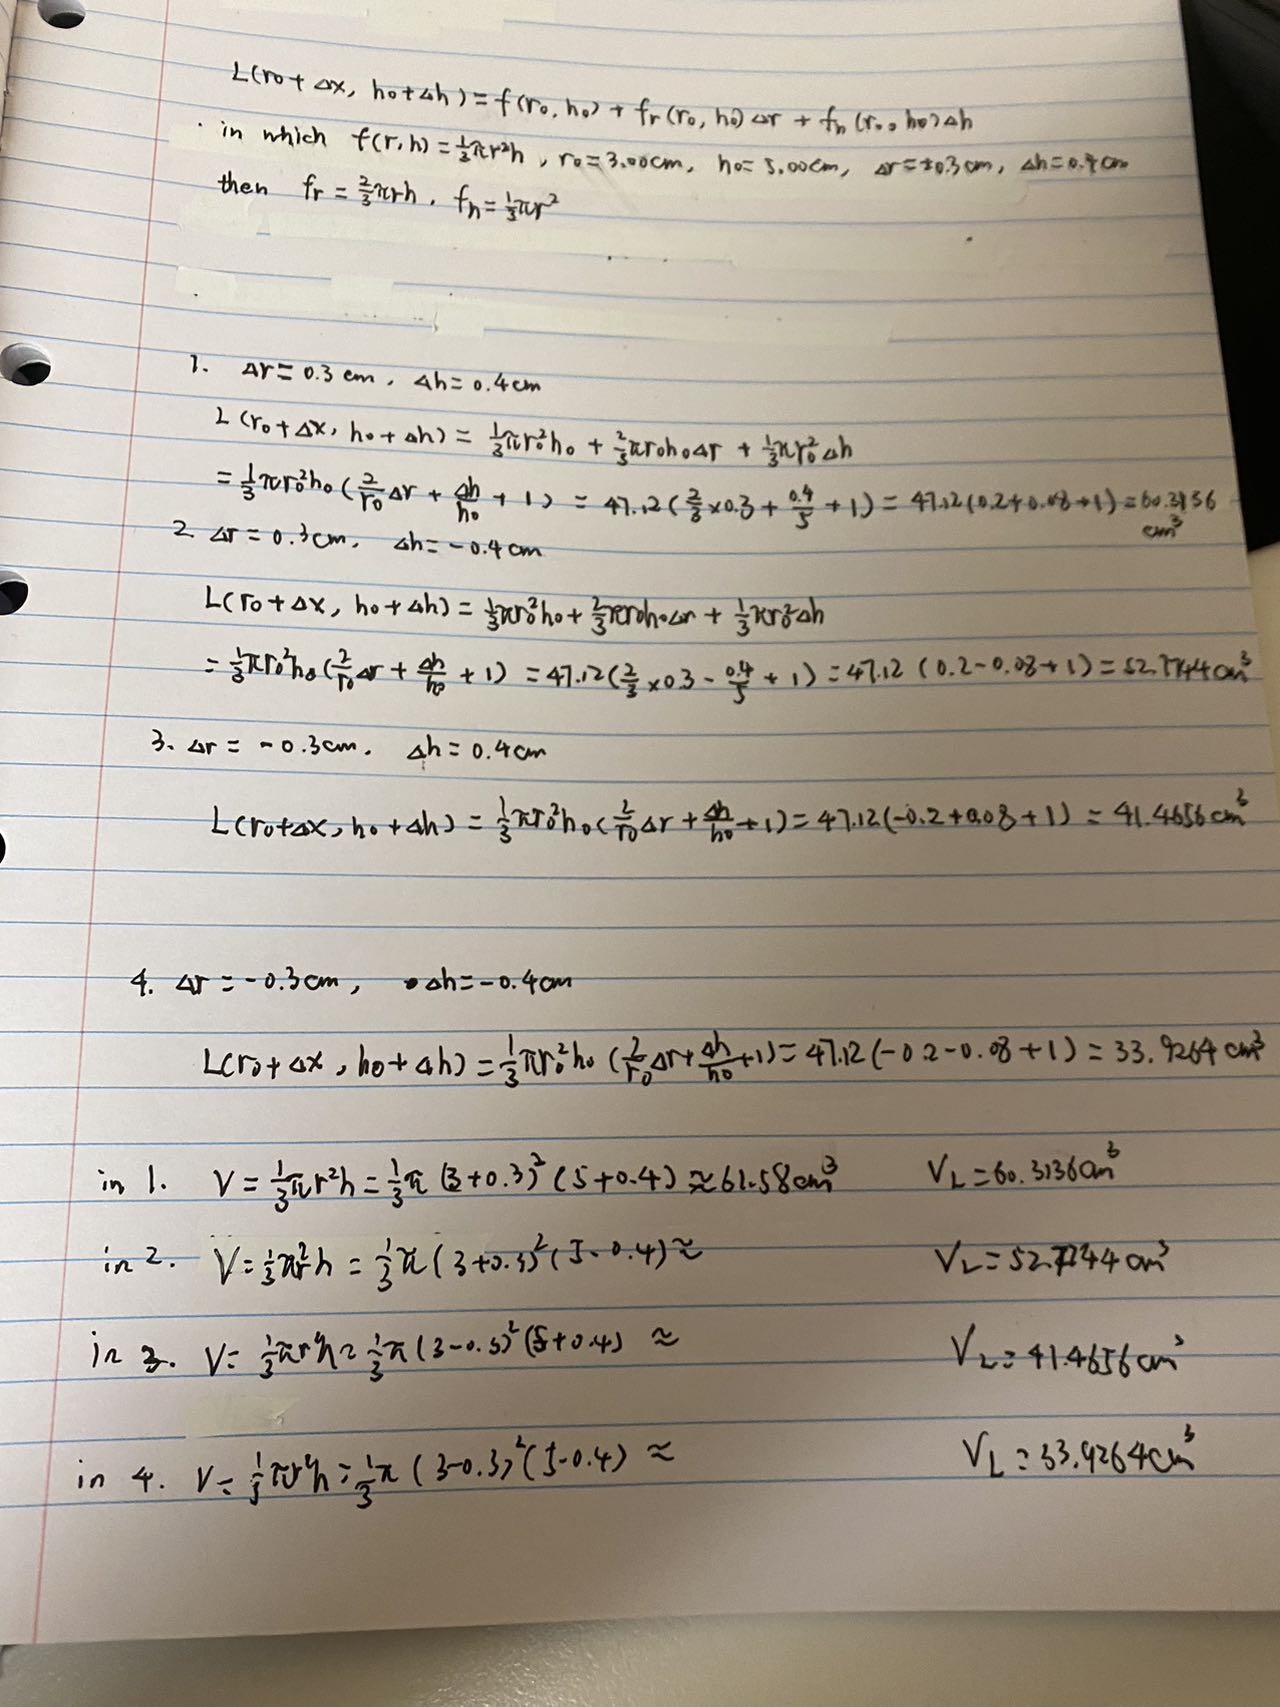 L(r₀+Δx, h₀+Δh)=f(r₀,h₀)+fr(r₀,h₀)Δr+fh(r₀,h₀)Δh
in which f(r,h)=⅓πr²h, r₀=3.00cm, h₀=5.00cm, Δr=±0.3cm, Δh=0.4cm
then fr=⅔πrh, fh=⅓πr²
1. Δr=0.3cm, Δh=0.4cm
L(r₀+Δx, h₀+Δh)=⅓πr₀²h₀+⅔πr₀h₀Δr+⅓πr₀²Δh
=⅓πr₀²h₀(2/r₀Δr+Δh/h₀+1)=47.12(⅔×0.3+0.4/5+1)=47.12(0.2+0.08+1)=60.3136
cm³
2. Δr=0.3cm, Δh=-0.4cm
L(r₀+Δx, h₀+Δh)=⅓πr₀²h₀+⅔πr₀h₀Δr+⅓πr₀²Δh
=⅓πr₀²h₀(2/r₀Δr+Δh/h₀+1)=47.12(⅔×0.3-0.4/5+1)=47.12(0.2-0.08+1)=52.7744cm³
3. Δr=-0.3cm. Δh=0.4cm
L(r₀+Δx, h₀+Δh)=⅓πr₀²h₀(2/r₀Δr+Δh/h₀+1)=47.12(-0.2+0.08+1)=41.4656cm³
4. Δr=-0.3cm, Δh=-0.4cm
L(r₀+Δx, h₀+Δh)=⅓πr₀²h₀(2/r₀Δr+Δh/h₀+1)=47.12(-0.2-0.08+1)=33.9264cm³
in 1. V=⅓πr²h=⅓π(3+0.3)²(5+0.4)≈61.58cm³ V_L=60.3136cm³
in 2. V=⅓πr²h=⅓π(3+0.3)²(5-0.4)≈ V_L=52.7744cm³
in 3. V=⅓πr²h=⅓π(3-0.3)²(5+0.4)≈ V_L=41.4656cm³
in 4. V=⅓πr²h=⅓π(3-0.3)²(5-0.4)≈ V_L=33.9264cm³